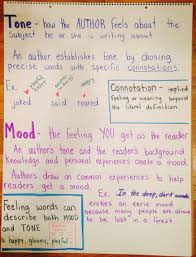 Tone - how the AUTHOR feels about the
subject he or she is writing about
An author establishes tone by choosing
precise words with specific connotations.
playful
happy
angry
Ex.
joked said roared
Connotation - implied
feeling or meaning beyond
the literal definition
Mood - the feeling YOU get as the reader
An author's tone and the reader's background
knowledge and personal experiences create a mood.
Authors draw on common experiences to help
readers get a mood.
Ex. In the deep, dark woods
evokes an eerie mood
because many people are afraid
to be lost in a forest
Feeling words can
describe both MOOD
and TONE
happy, gloomy, playful